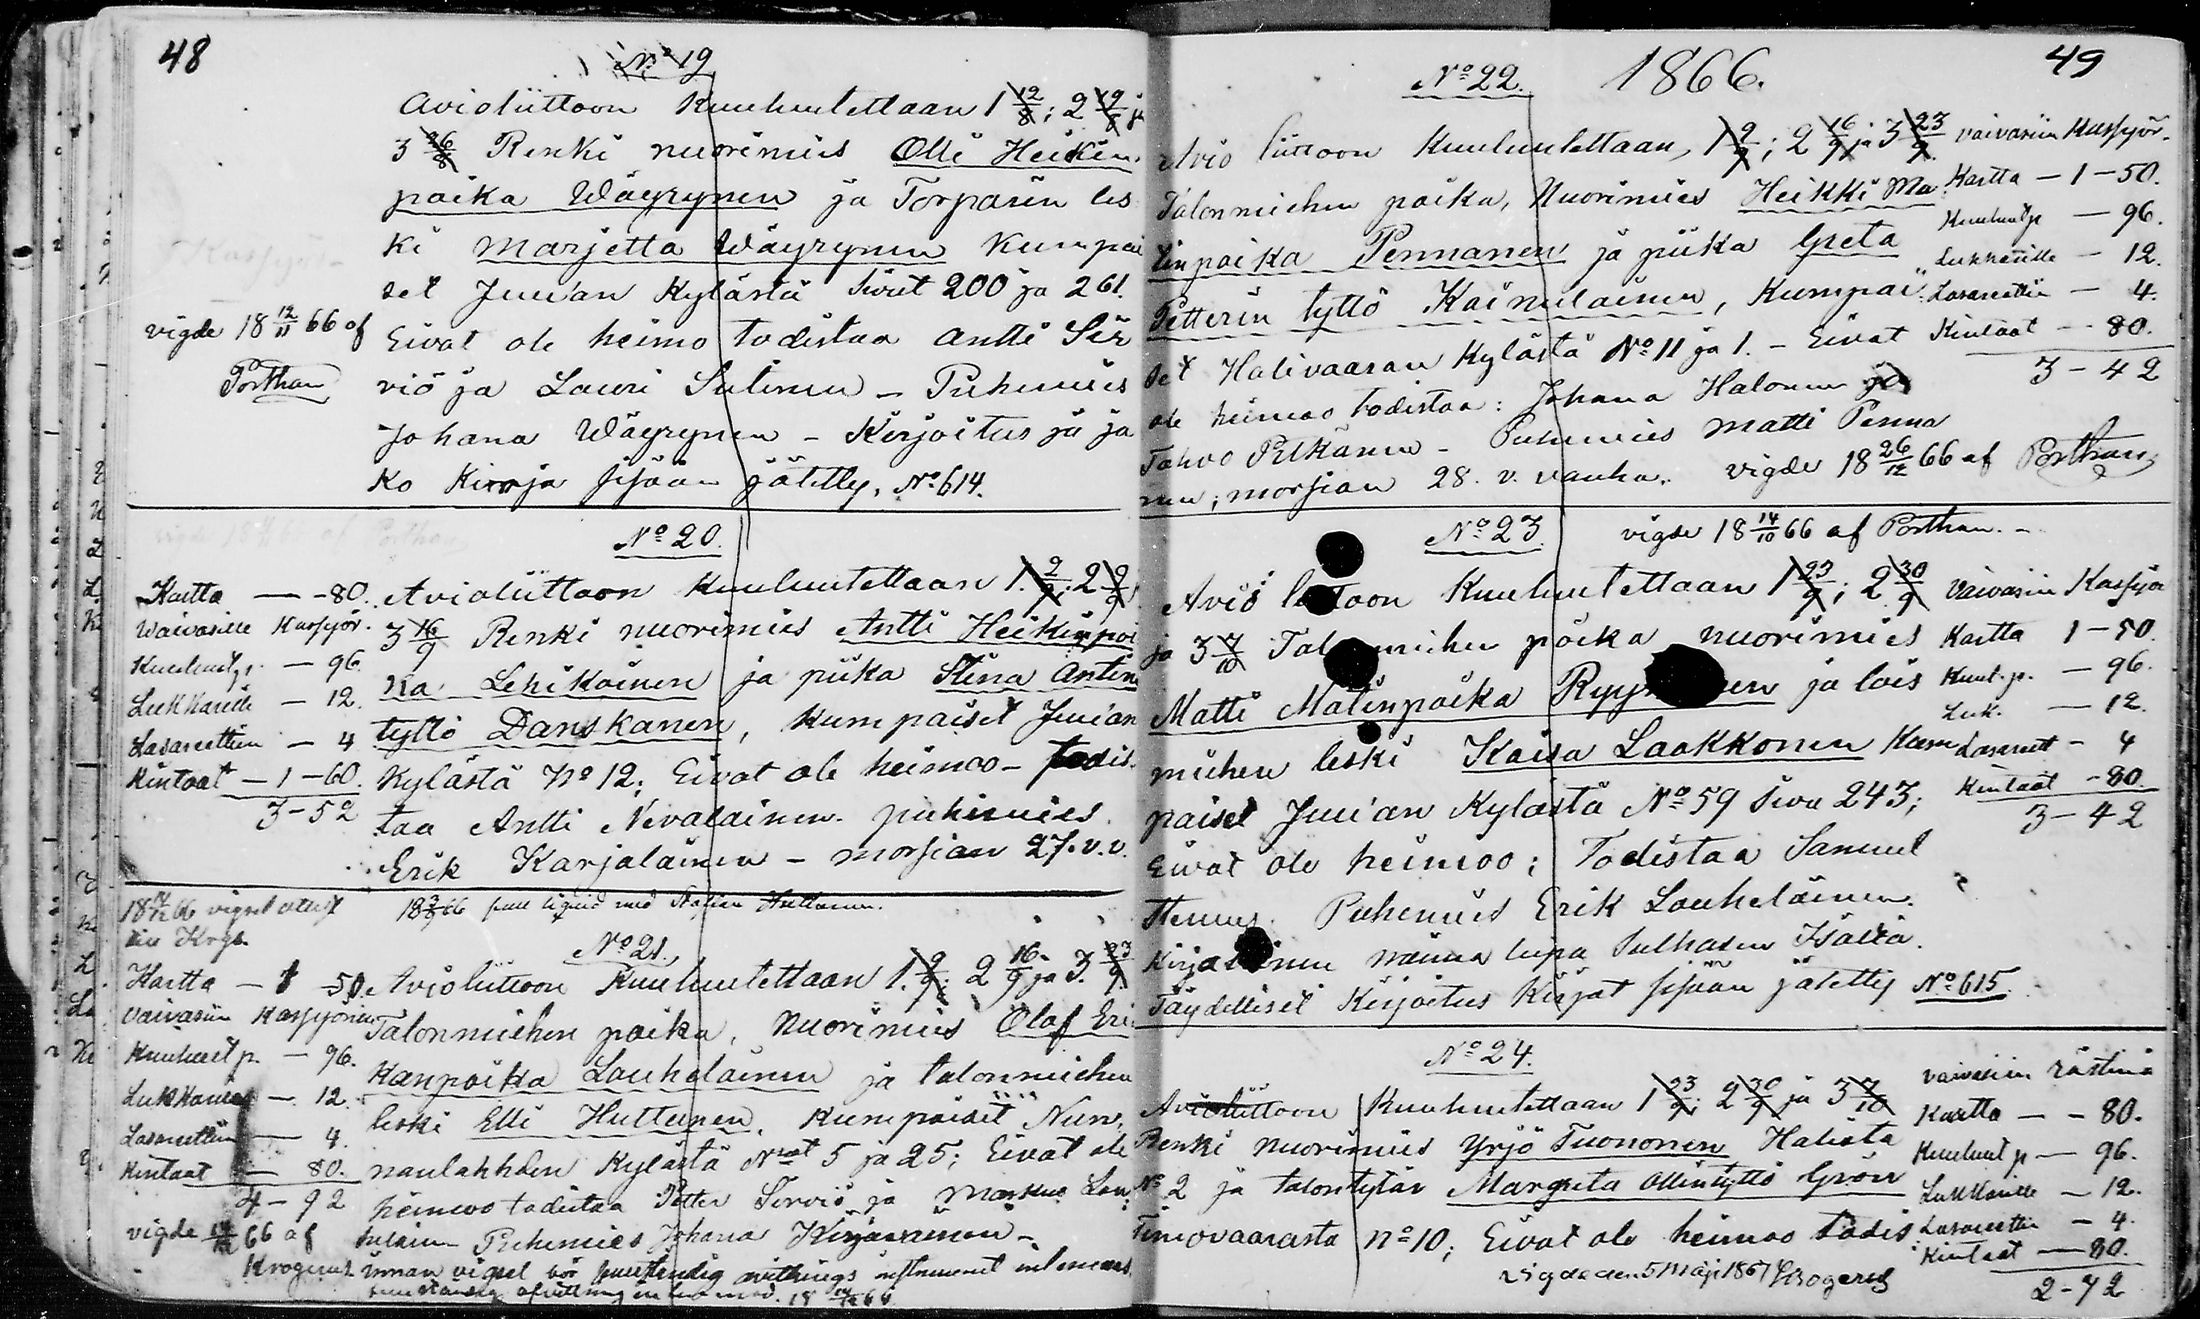 48
No 19
Avioliittoon Kuulutettaan 1 12/8; 2 19/8 ja
3 26/8 Renki nuorimies Olli Heikin
poika Wäyrynen ja Torparin les
ki Marjetta Wäyrynen Kumpai
set Juuan Kylästä Sivut 200 ja 261.
vigde 18 12/11 66 af
Porthan
Eivat ole heimo todistaa Antti Sir
viö ja Lauri Sutinen – Puhemies
Johana Wäyrynen – Kirjoitus ja ja
ko Kirja sisään jätetty, No 614.
No 20.
Kartta — -80.
Waivasille Kassyör.
Kuulut p. — 96.
Lukkarille — 12.
Lasarettiin — 4
Kintaat — 1 – 60.
3 – 52
Avioliittoon Kuulutettaan 1. 2/9; 2 9/9
3 16/9 Renki nuorimies Antti Heikinpoi
ka Lehikoinen ja piika Stina Antin
tyttö Danskanen, Kumpaiset Juuan
Kylästä No 12; Eivat ole heimoo – todis-
taa Antti Nevalainen puhemies
Erik Karjalainen – morsian 27. v. v.
No 21.
Kartta — 1 50
Vaivasiin Kassyörin
Kuulut p. — 96.
Lukkarille — 12.
Lasarettiin — 4.
Kintaat — 80.
4 – 92
vigde 66 af
Krogerus
Avioliittoon Kuulutettaan 1. 9/9; 2 16/9 ja 3. 23/9
Talonmiehen poika, Nuorimies Olof Eri
kanpoika Louhelainen ja talonmiehen
leski Elli Huttunen, Kumpaiset Nun,
nanlahden Kylästä Nrot 5 ja 25; Eivat ole
heimoo todistaa Petter Tervio ja Markus Lou
helainen Puhemies Johana Kirjavainen –
1866.
49
No 22.
Avio liittoon Kuulutettaan, 1 9/9; 2 16/9 ja 3 23/9
Talonmiehen poika, Nuorimies Heikki Ma
tinpoika Pennanen ja piika Greta
Petterin tyttö Kainulainen, Kumpai
set Halivaaran Kylästä No 11 ja 1. – Eivat
ole heimoo todistaa: Johana Halonen ja
Tahvo Pitkänen – Puhemies Matti Penna
nen; morsian 28. v. vanha. vigde 18 26/12 66 af Porthan
vaivasiin Kassyör.
Kartta – 1 – 50.
Kuulut p — 96.
Lukkarille — 12.
Lasarettiin — 4.
Kintaat — 80.
3 – 42
No 23. vigde 18 14/10 66 af Porthan. –
Avio liittoon Kuulutettaan 1 23/9; 2 30/9
ja 3 7/10 Talonmiehen poika nuorimies
Matti Matinpoika Ryynänen ja lois
miehen leski Kaisa Laakkonen Kum
paiset Juuan Kylästä No 59 Sivu 243;
Eivat ole heimoo; Todistaa Samuel
Puhemies Erik Louhelainen.
naima lupa Sulhasen Isältä.
Täydelliset Kirjoitus Kirjat sisään jätetty No 615
Vaivasiin Kassyör
Kartta 1 – 50.
Kuul. p. — 96.
Luk. — 12.
Lasarett – 4
Kintaat – 80.
3 – 42
No 24.
Avioliittoon Kuulutettaan 1 23/9; 2 30/9 ja 3 7/10
Renki nuorimies Yrjö Tuononen Halista
No 2 ja talontytär Margreta Ollintyttö Grön
Timovaarasta No 10; Eivat ole heimoo todis
vigde den 5 Maji 1867 Krogerus
vaivasiin rästinä
Kartta — – 80.
Kuulut p — 96.
Lukkarille — 12.
Lasarettiin — 4.
Kintaat — 80.
2 – 72